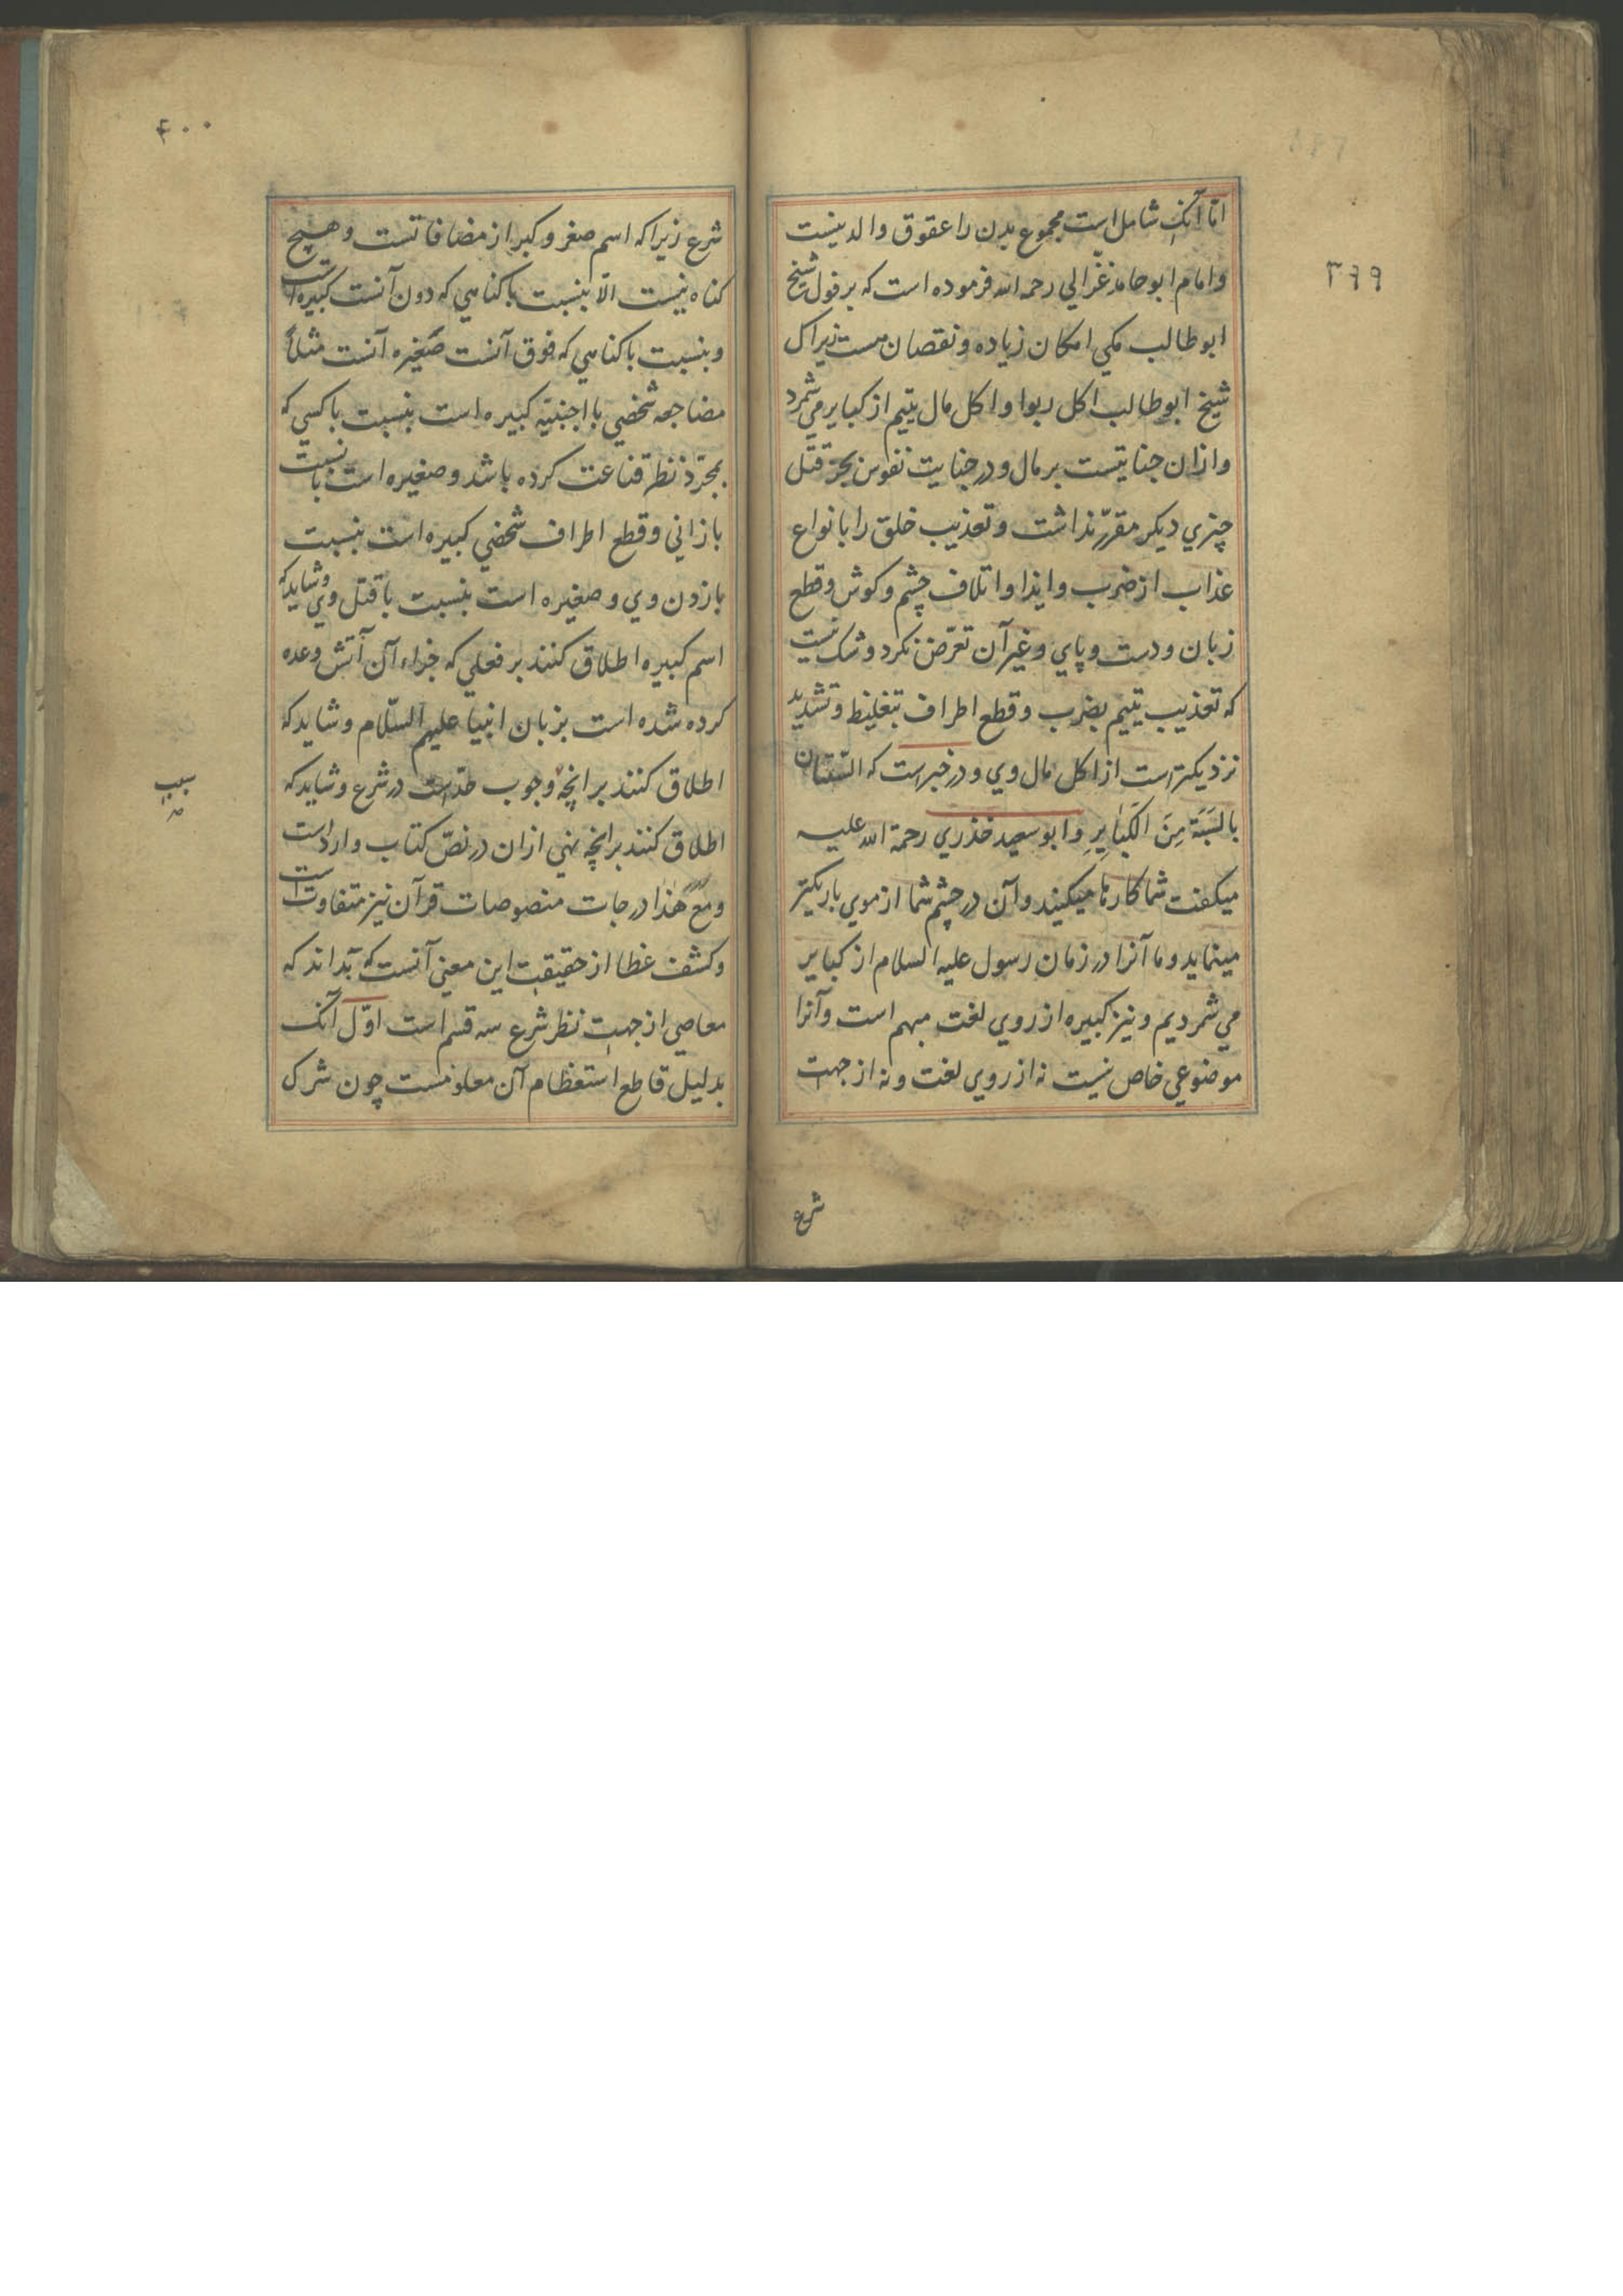 ۳۹۹
اما آنک شامل است مجموع بدن را عقوق والدینست
وامام ابو حامد غزّالي رحمه الله فرموده است که بر قول شیخ
ابو طالب مکي امکان زیاده و نقصان هست زیراک
شیخ ابو طالب اکل ربوا و اکل مال یتیم از کبایر می شمرد
وازان جنایتست بر مال و در جنایت نفوس بجز قتل
چیزي دیکر مقرّر نداشت و تعذیب خلق را با نواع
عذاب از ضرب و ایذا و اتلاف چشم و کوش و قطع
زبان و دست و پاي و غیر آن تعرّض نکرد و شک نیست
که تعذیب یتیم بضرب و قطع اطراف بتغلیظ و تشدید
نزدیکتر است از اکل مال وي و در خبر است که السّبتان
بالسَبَّة مِنَ الکَبٰایِرِ و ابو سعید خذري رحمة الله علیه
میکفت شما کارها میکنید و آن در چشم شما از موي باریکتر
مینماید و ما آنرا در زمان رسول علیه السلام از کبایر
مي شمردیم و نیز کبیره از روي لغت مبهم است و آنرا
موضوعي خاص نیست نه از روي لغت و نه از جهت
شرع
۴۰۰
شرع زیرا که اسم صغر و کبر از مضافاتست و هیچ
کناه نیست الّا بنسبت با کناهي که دون آنست کبیره است
و بنسبت با کناهي که فوق آنست صغیره آنست مثلاً
مضاجعه شخصي با اجنبیّه کبیره است بنسبت با کسي که
بمجرّد نظر قناعت کرده باشد و صغیره است با نسبت
با زاني و قطع اطراف شخصي کبیره است بنسبت
با زدن وي و صغیره است بنسبت با قتل وي و شاید که
اسم کبیره اطلاق کنند بر فعلي که جزاء آن آتش وعده
کرده شده است بزبان انبیا علیهم السّلام و شاید که
اطلاق کنند بر انچه وجوب حدّ است در شرع و شاید که
اطلاق کنند بر انچه نهي ازان در نصّ کتاب وارد است
ومع هٰذا درجات منصوصات قرآن نیز متفاوت است
و کشف غطا از حقیقت این معني آنست که بداند که
معاصي از جهت نظر شرع سه قسم است اوّل آنک
بدلیل قاطع استعظام آن معلومست چون شرک
سبب